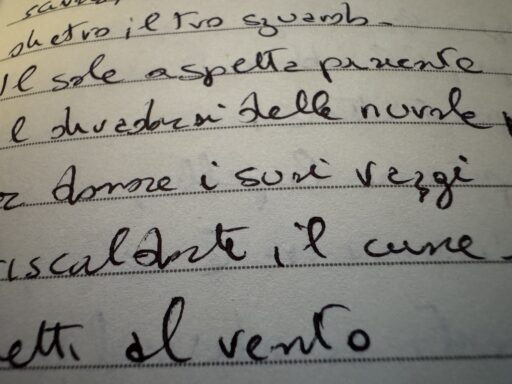 dietro il tuo sguardo.
Il sole aspetta paziente
il diradarsi delle nuvole
donare i suoi raggi
riscaldante, il cuore
al vento